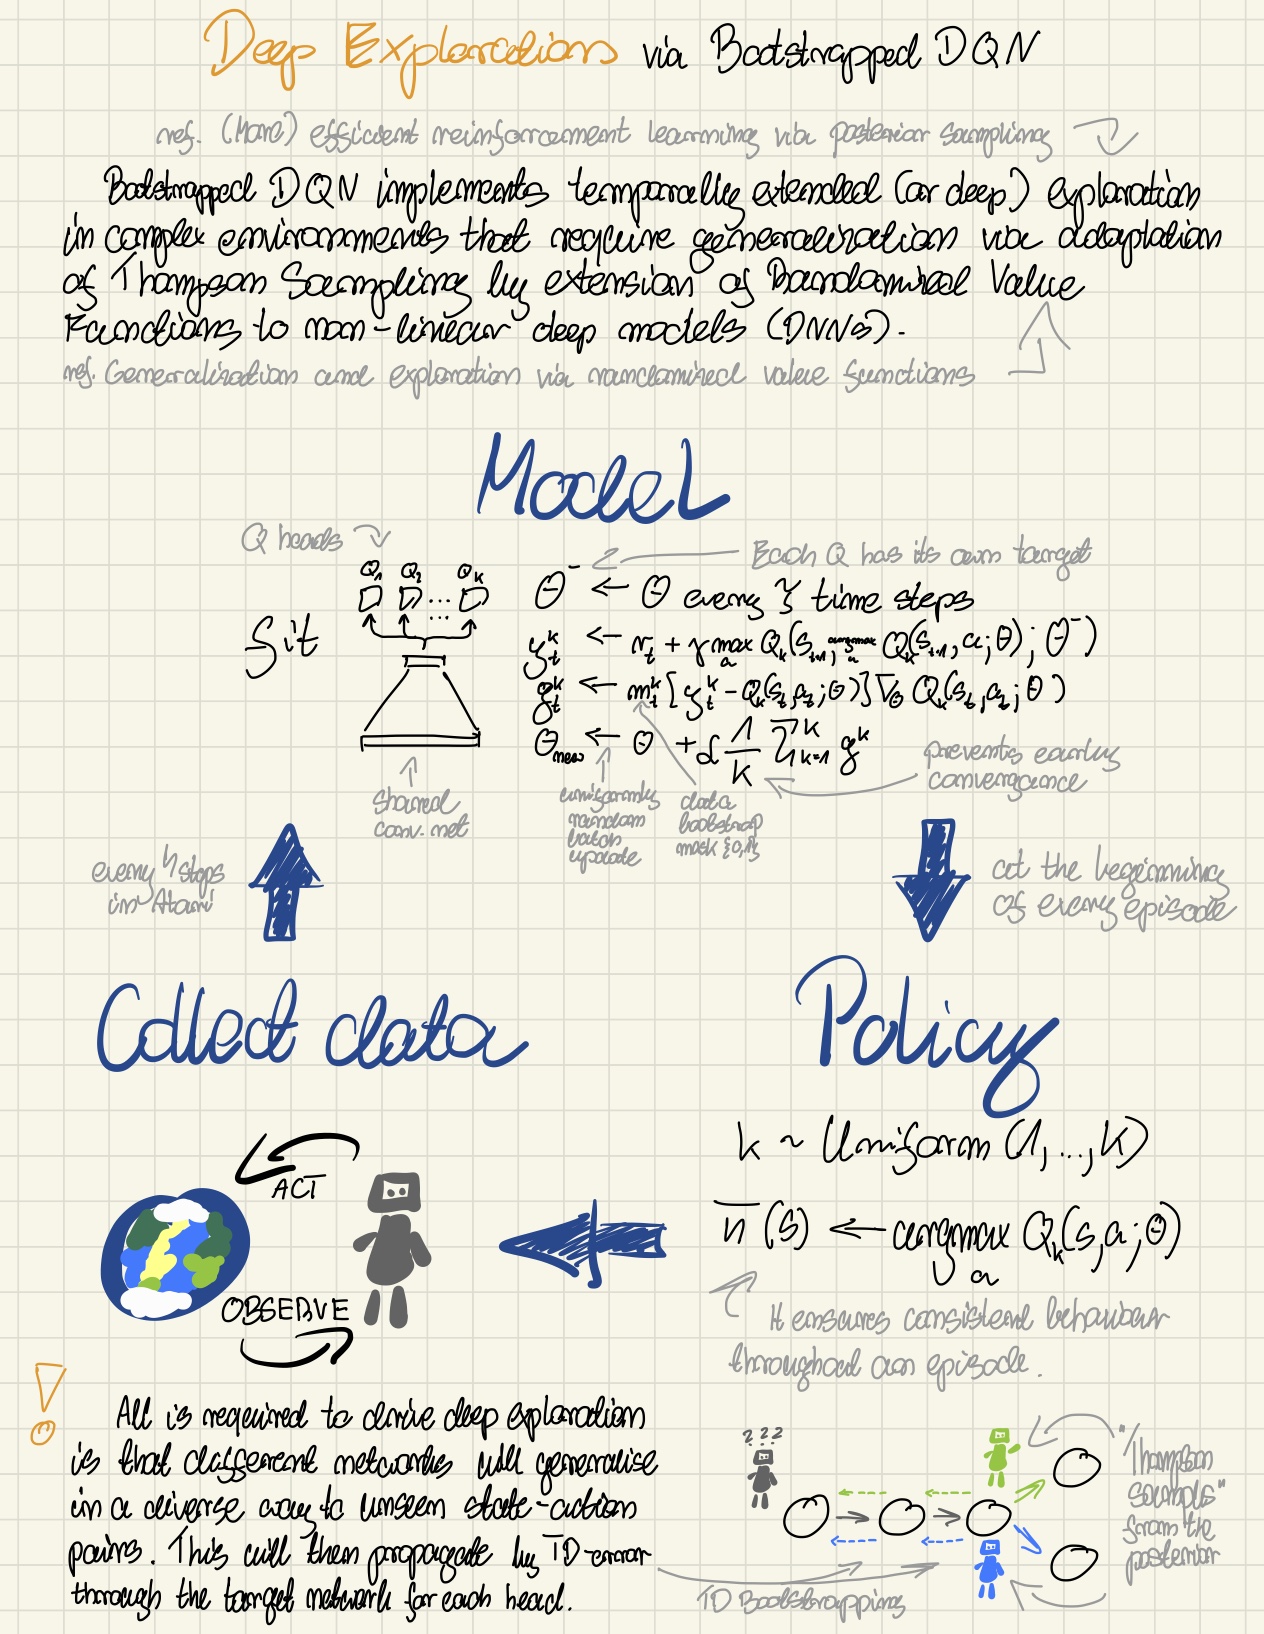 Deep Explorations via Bootstrapped DQN
ref. (More) efficient reinforcement learning via posterior sampling
Bootstrapped DQN implements temporally extended (or deep) exploration
in complex environments that require generalization via adaptation
of Thompson Sampling by extension of Randomized Value
Functions to non-linear deep models (DNNs).
ref. Generalization and exploration via randomized value functions
Model
Q heads
Each Q has its own target
Q₁ Q₂ Qₖ
... ...
Fit
θ⁻ ← θ every τ time steps
yₜᵏ ← rₜ + γ max_a Qₖ(sₜ₊₁, argmax_a Qₖ(sₜ₊₁, a; θ); θ⁻)
gₜᵏ ← mₜᵏ [yₜᵏ - Qₖ(sₜ, aₜ; θ)] ∇θ Qₖ(sₜ, aₜ; θ)
θnew ← θ + α 1/K Σᴷₖ₌₁ gᵏ
prevents early
convergence
shared
conv. net
uniformly
random
batch
update
data
bootstrap
mask {0,1}
every 4 steps
in Atari
at the beginning
of every episode
Collect data
Policy
k ~ Uniform (1,...,K)
π(s) ← argmax_a Qₖ(s,a;θ)
ACT
OBSERVE
It ensures consistent behaviour
throughout an episode.
!
All is required to drive deep exploration
is that different networks will generalise
in a diverse way to unseen state-action
pairs. This will then propagate by TD-error
through the target network for each head.
???
"Thompson
sample"
from the
posterior
TD Bootstrapping